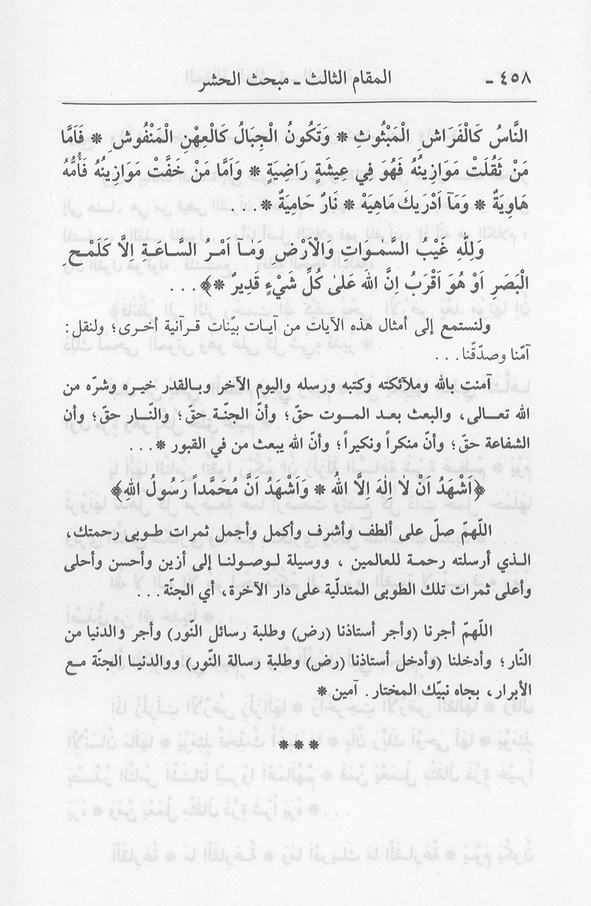 ٤٥٨ ـ المقام الثالث ـ مبحث الحشر
النَّاسُ كَالْفَرَاشِ الْمَبْثُوثِ * وَتَكُونُ الْجِبَالُ كَالْعِهْنِ الْمَنْفُوشِ * فَاَمَّا
مَنْ ثَقُلَتْ مَوَازِينُهُ فَهُوَ فِي عِيشَةٍ رَاضِيَةٍ * وَاَمَّا مَنْ خَفَّتْ مَوَازِينُهُ فَأُمُّهُ
هَاوِيَةٌ * وَمَآ اَدْرٰيكَ مَاهِيَهْ * نَارٌ حَامِيَةٌ *...
وَلِلّٰهِ غَيْبُ السَّمٰوَاتِ وَالْاَرْضِ وَمَآ اَمْرُ السَّاعَةِ اِلَّا كَلَمْحِ
الْبَصَرِ اَوْ هُوَ اَقْرَبُ اِنَّ اللهَ عَلىٰ كُلِّ شَيْءٍ قَدِيرٌ *﴾...
ولنستمع إلى أمثال هذه الآيات من آيات بيّنات قرآنية أخرى؛ ولنقل:
آمنّا وصدّقنا...
آمنت بالله وملآئكته وكتبه ورسله واليوم الآخر وبالقدر خيره وشرّه من
الله تعالى، والبعث بعد الموت حقّ؛ وأنّ الجنّة حقّ؛ والنّار حقّ؛ وأن
الشفاعة حقّ؛ وأنّ منكراً ونكيراً؛ وأنّ الله يبعث من في القبور *...
﴿اَشْهَدُ اَنْ لاَ اِلٰهَ اِلَّا اللهُ * وَاَشْهَدُ اَنَّ مُحَمَّداً رَسُولُ اللهِ﴾
اللّهمّ صلّ على ألطف وأشرف وأكمل وأجمل ثمرات طوبى رحمتك،
الذي أرسلته رحمة للعالمين، ووسيلة لوصولنا إلى أزين وأحسن وأحلى
وأعلى ثمرات تلك الطوبى المتدلّية على دار الآخرة، أي الجنّة...
اللّهمّ أجرنا (وأجر أستاذنا (رض) وطلبة رسائل النّور) وأجر والدنيا من
النّار؛ وأدخلنا (وأدخل أستاذنا (رض) وطلبة رسالة النّور) ووالدنيا الجنّة مع
الأبرار، بجاه نبيّك المختار. آمين *
***